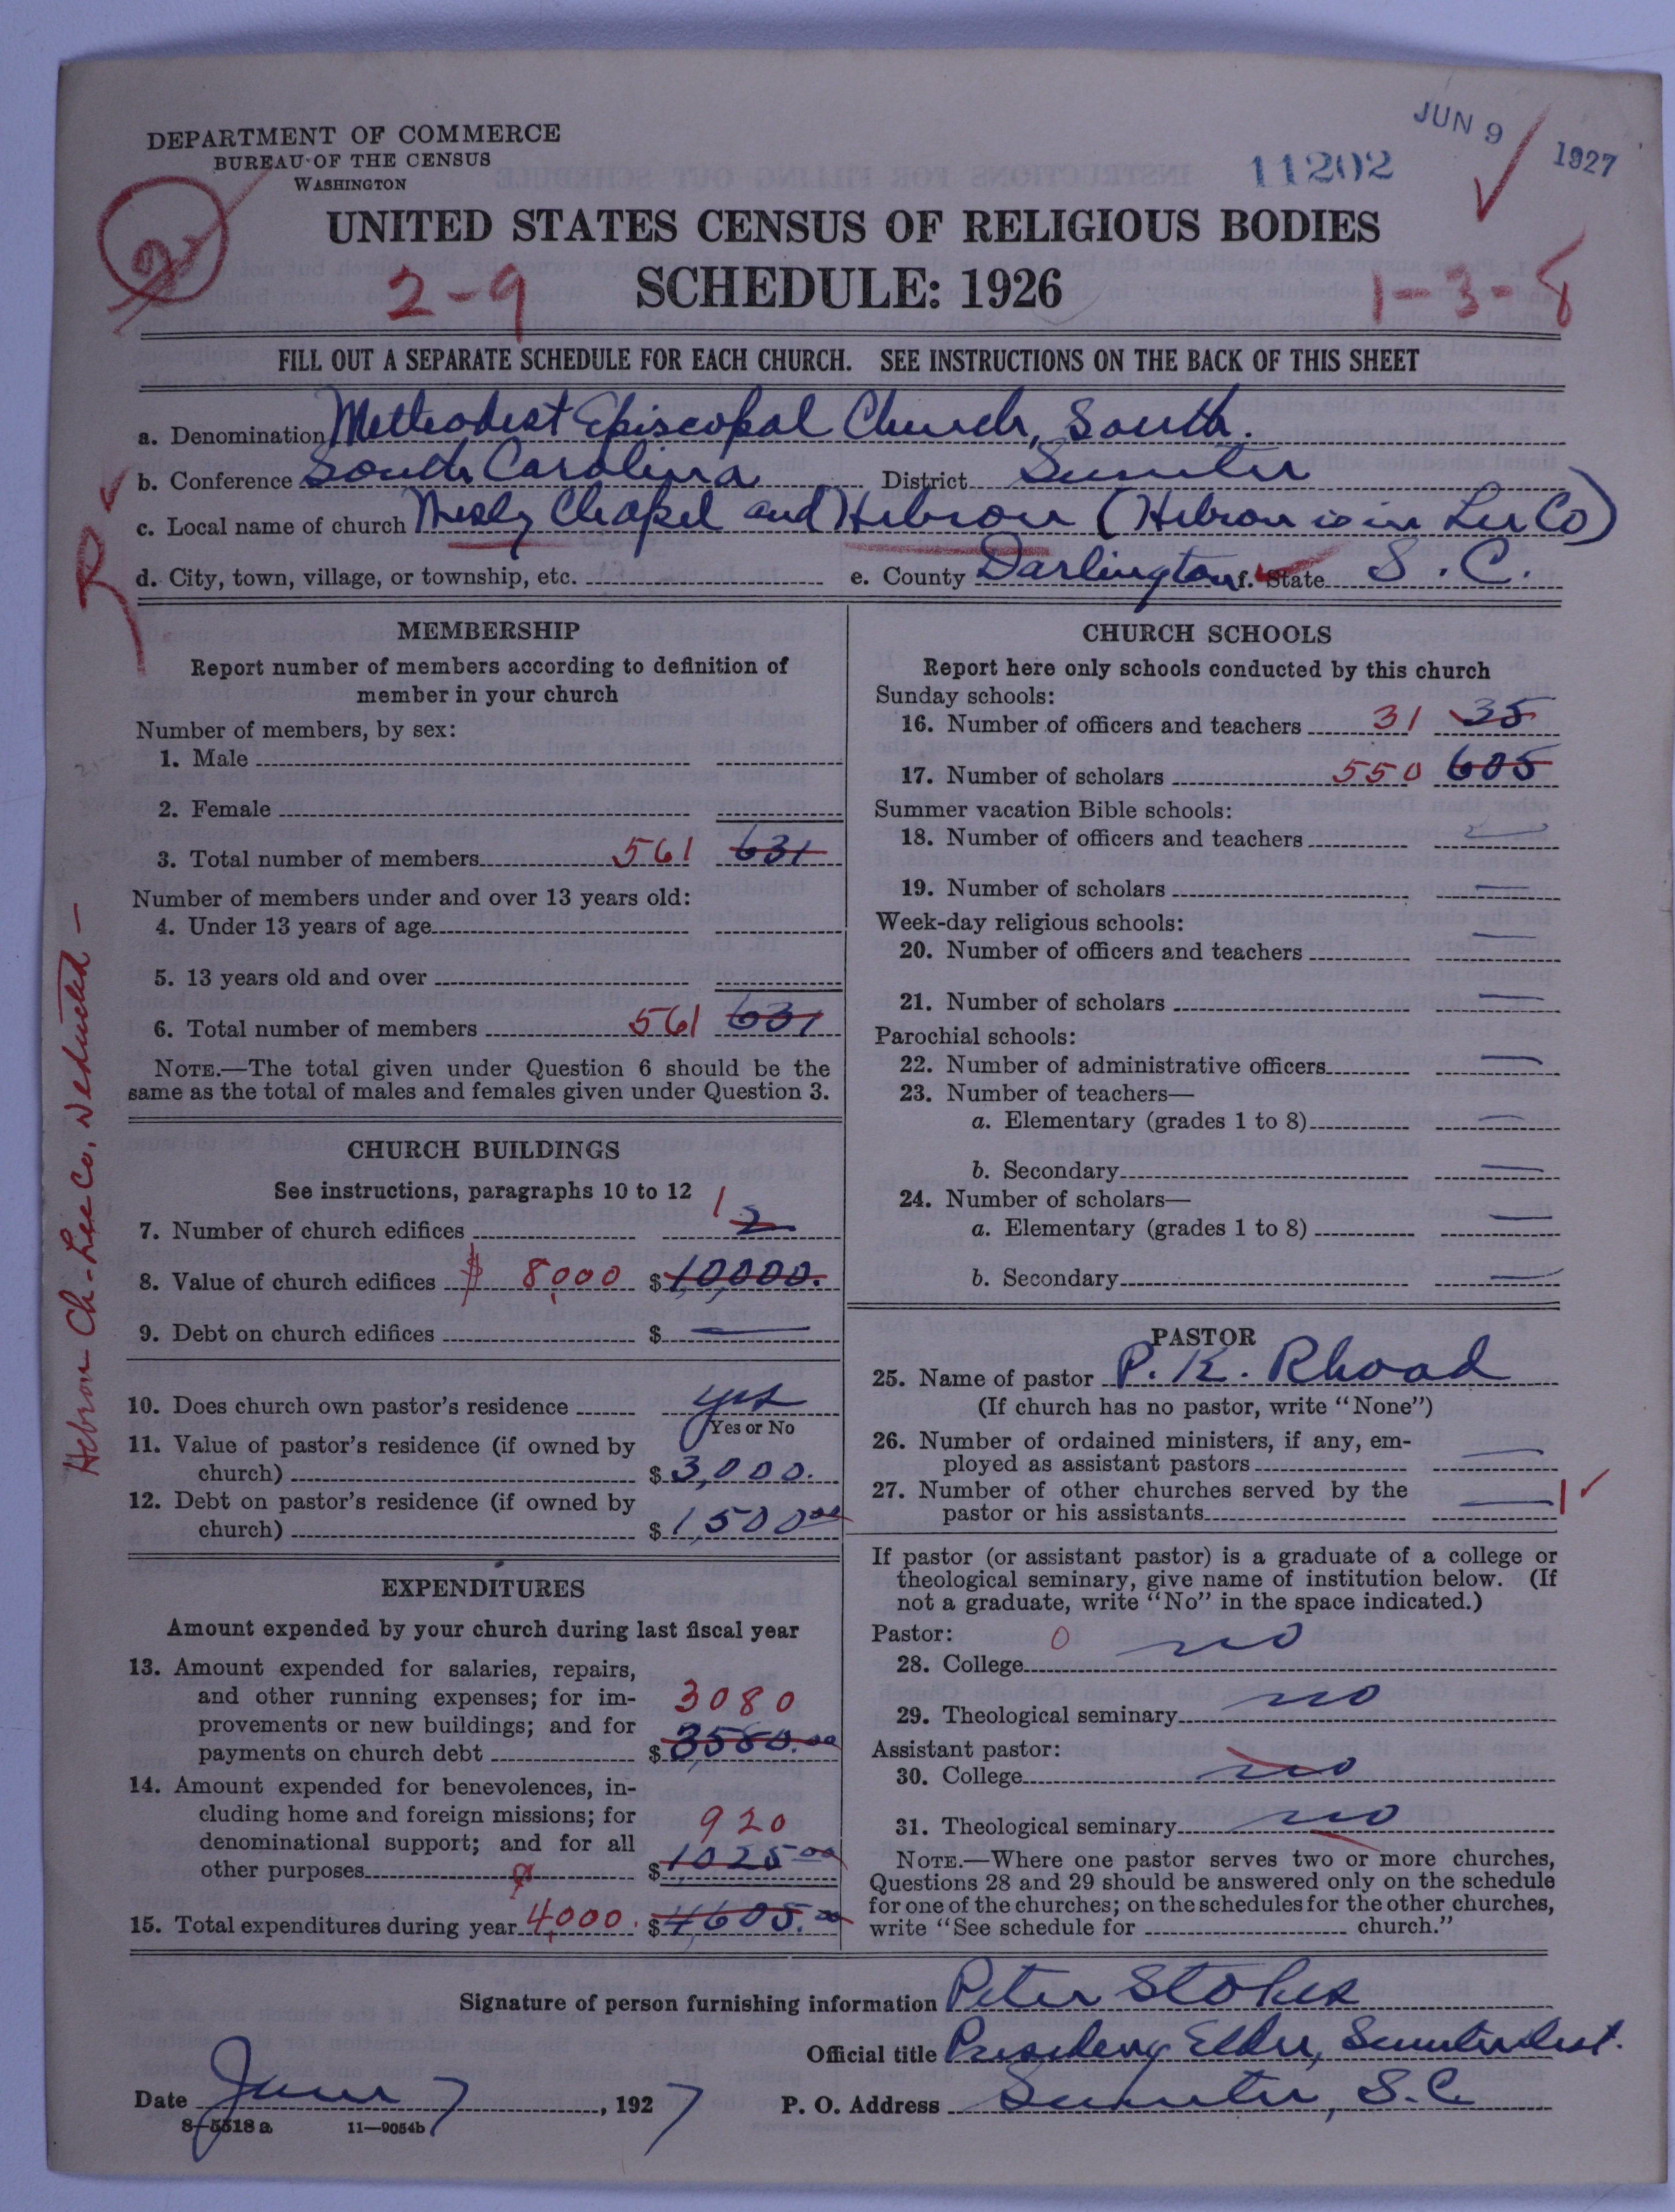 JUN 9 1927
11202
DEPARTMENT OF COMMERCE
BUREAU OF THE CENSUS
WASHINGTON
2
UNITED STATES CENSUS OF RELIGIOUS BODIES
2-9
SCHEDULE: 1926
1-3-8
FILL OUT A SEPARATE SCHEDULE FOR EACH CHURCH. SEE INSTRUCTIONS ON THE BACK OF THIS SHEET
a. Denomination Methodist Episcopal Church, South.
b. Conference South Carolina District Sumter
c. Local name of church Wesley Chapel and Hebron (Hebron is in Lee Co)
d. City, town, village, or township, etc. e. County Darlington f. State S.C.
R
Hebron Ch-Lee Co, deducted-
MEMBERSHIP
Report number of members according to definition of
member in your church
Number of members, by sex:
1. Male
2. Female
3. Total number of members 561 631
Number of members under and over 13 years old:
4. Under 13 years of age
5. 13 years old and over
6. Total number of members 561 631
NOTE.—The total given under Question 6 should be the
same as the total of males and females given under Question 3.
CHURCH BUILDINGS
See instructions, paragraphs 10 to 12
7. Number of church edifices 1 2
8. Value of church edifices $ 8,000 $ 10,000.
9. Debt on church edifices $ —
10. Does church own pastor's residence yes
Yes or No
11. Value of pastor's residence (if owned by
church) $ 3,000.
12. Debt on pastor's residence (if owned by
church) $ 1,500 00
EXPENDITURES
Amount expended by your church during last fiscal year
13. Amount expended for salaries, repairs,
and other running expenses; for im-
provements or new buildings; and for
payments on church debt 3080 $ 3580.00
14. Amount expended for benevolences, in-
cluding home and foreign missions; for
denominational support; and for all
other purposes 920 $ 1025 00
15. Total expenditures during year 4,000. $ 4605.00
CHURCH SCHOOLS
Report here only schools conducted by this church
Sunday schools:
16. Number of officers and teachers 31 35
17. Number of scholars 550 605
Summer vacation Bible schools:
18. Number of officers and teachers —
19. Number of scholars —
Week-day religious schools:
20. Number of officers and teachers —
21. Number of scholars —
Parochial schools:
22. Number of administrative officers —
23. Number of teachers—
a. Elementary (grades 1 to 8) —
b. Secondary —
24. Number of scholars—
a. Elementary (grades 1 to 8) —
b. Secondary —
PASTOR
25. Name of pastor P. K. Rhoad
(If church has no pastor, write "None")
26. Number of ordained ministers, if any, em-
ployed as assistant pastors —
27. Number of other churches served by the
pastor or his assistants — 1
If pastor (or assistant pastor) is a graduate of a college or
theological seminary, give name of institution below. (If
not a graduate, write "No" in the space indicated.)
Pastor: 0
28. College no
29. Theological seminary no
Assistant pastor:
30. College no
31. Theological seminary no
NOTE.—Where one pastor serves two or more churches,
Questions 28 and 29 should be answered only on the schedule
for one of the churches; on the schedules for the other churches,
write "See schedule for church."
Signature of person furnishing information Peter Stokes
Official title Presiding Elder, Sumter Dist.
Date June 7, 1927 P. O. Address Sumter, S.C.
8—5518 a 11—9054b